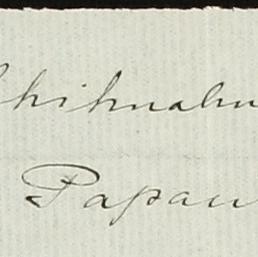 Chihuahu
Papau